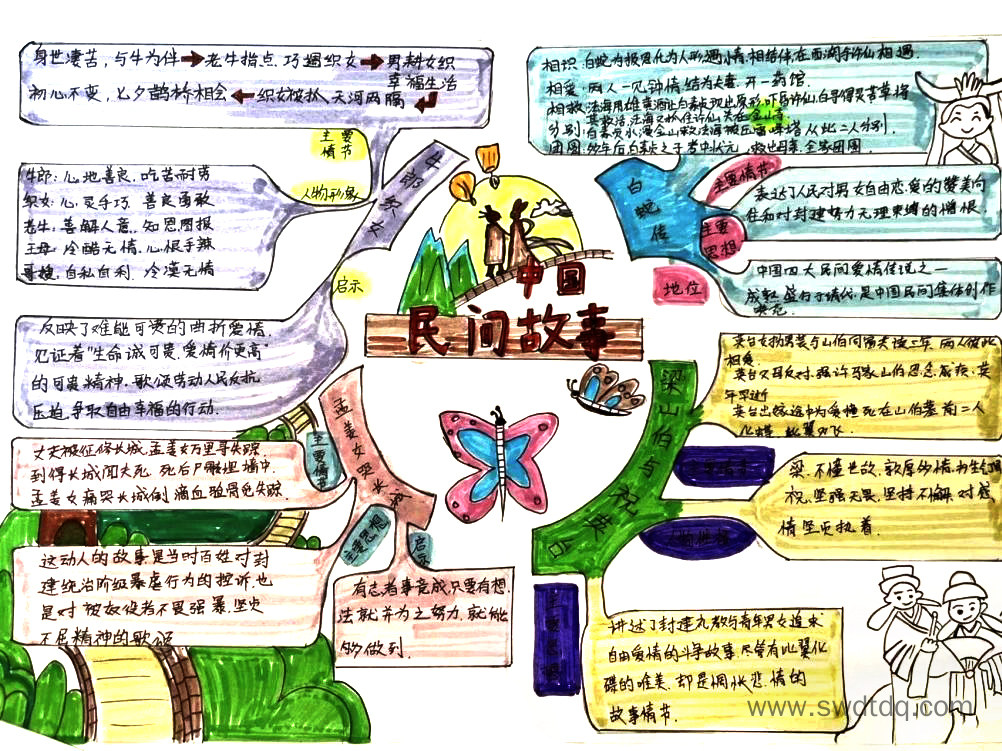 身世凄苦，与牛为伴→老牛指点，巧遇织女→男耕女织
幸福生活
初心不变，七夕鹊桥相会←织女被抓，天河两隔
主要
情节
牛郎：心地善良，吃苦耐劳
织女：心灵手巧 善良勇敢
老牛：善解人意，知恩图报
王母：冷酷无情，心恨手辣
哥嫂：自私自利 冷漠无情
人物形象
牛郎织女
启示
反映了难能可贵的曲折爱情，
见证着"生命诚可贵，爱情价更高"
的可贵精神，歌颂劳动人民反抗
压迫，争取自由幸福的行动．
中国
民间故事
相识：白蛇为报恩化为人形遇小情，相结伴，在西湖与许仙相遇．
相爱：两人一见钟情，结为夫妻，开一药馆．
团圆：
救出母亲，全家团圆．
白蛇传
主要情节
表达了人民对男女自由恋爱的赞美向
往和对封建势力无理束缚的憎恨．
主要
思想
中国四大民间爱情传说之一
成熟盛行于清代，是中国民间集体创作
典范．
地位
孟姜女哭长城
主要情节
丈夫被征修长城，孟姜女万里寻夫踪，
到得长城闻夫死，死后尸骸埋墙中．
孟姜女痛哭长城倒，滴血验骨觅失踪．
这动人的故事，是当时百姓对封
建统治阶级暴虐行为的控诉，也
是对被奴役者不畏强暴，坚贞
不屈精神的歌颂
启示
有志者事竟成，只要有想
法就并为之努力，就能
够做到．
梁山伯与祝英台
英台女扮男装与山伯同窗共读三年，两人彼此
相爱．
英台出嫁途中为爱撞死在山伯墓前，二人
化蝶，比翼双飞．
梁：不懂世故，敦厚纯情，
祝：坚强无畏，坚持不懈，对感
情坚贞执着．
讲述了封建礼教与青年男女追求
自由爱情的斗争故事，尽管有比翼化
碟的唯美，却是惆怅悲情的
故事情节．
www.swdtdq.com